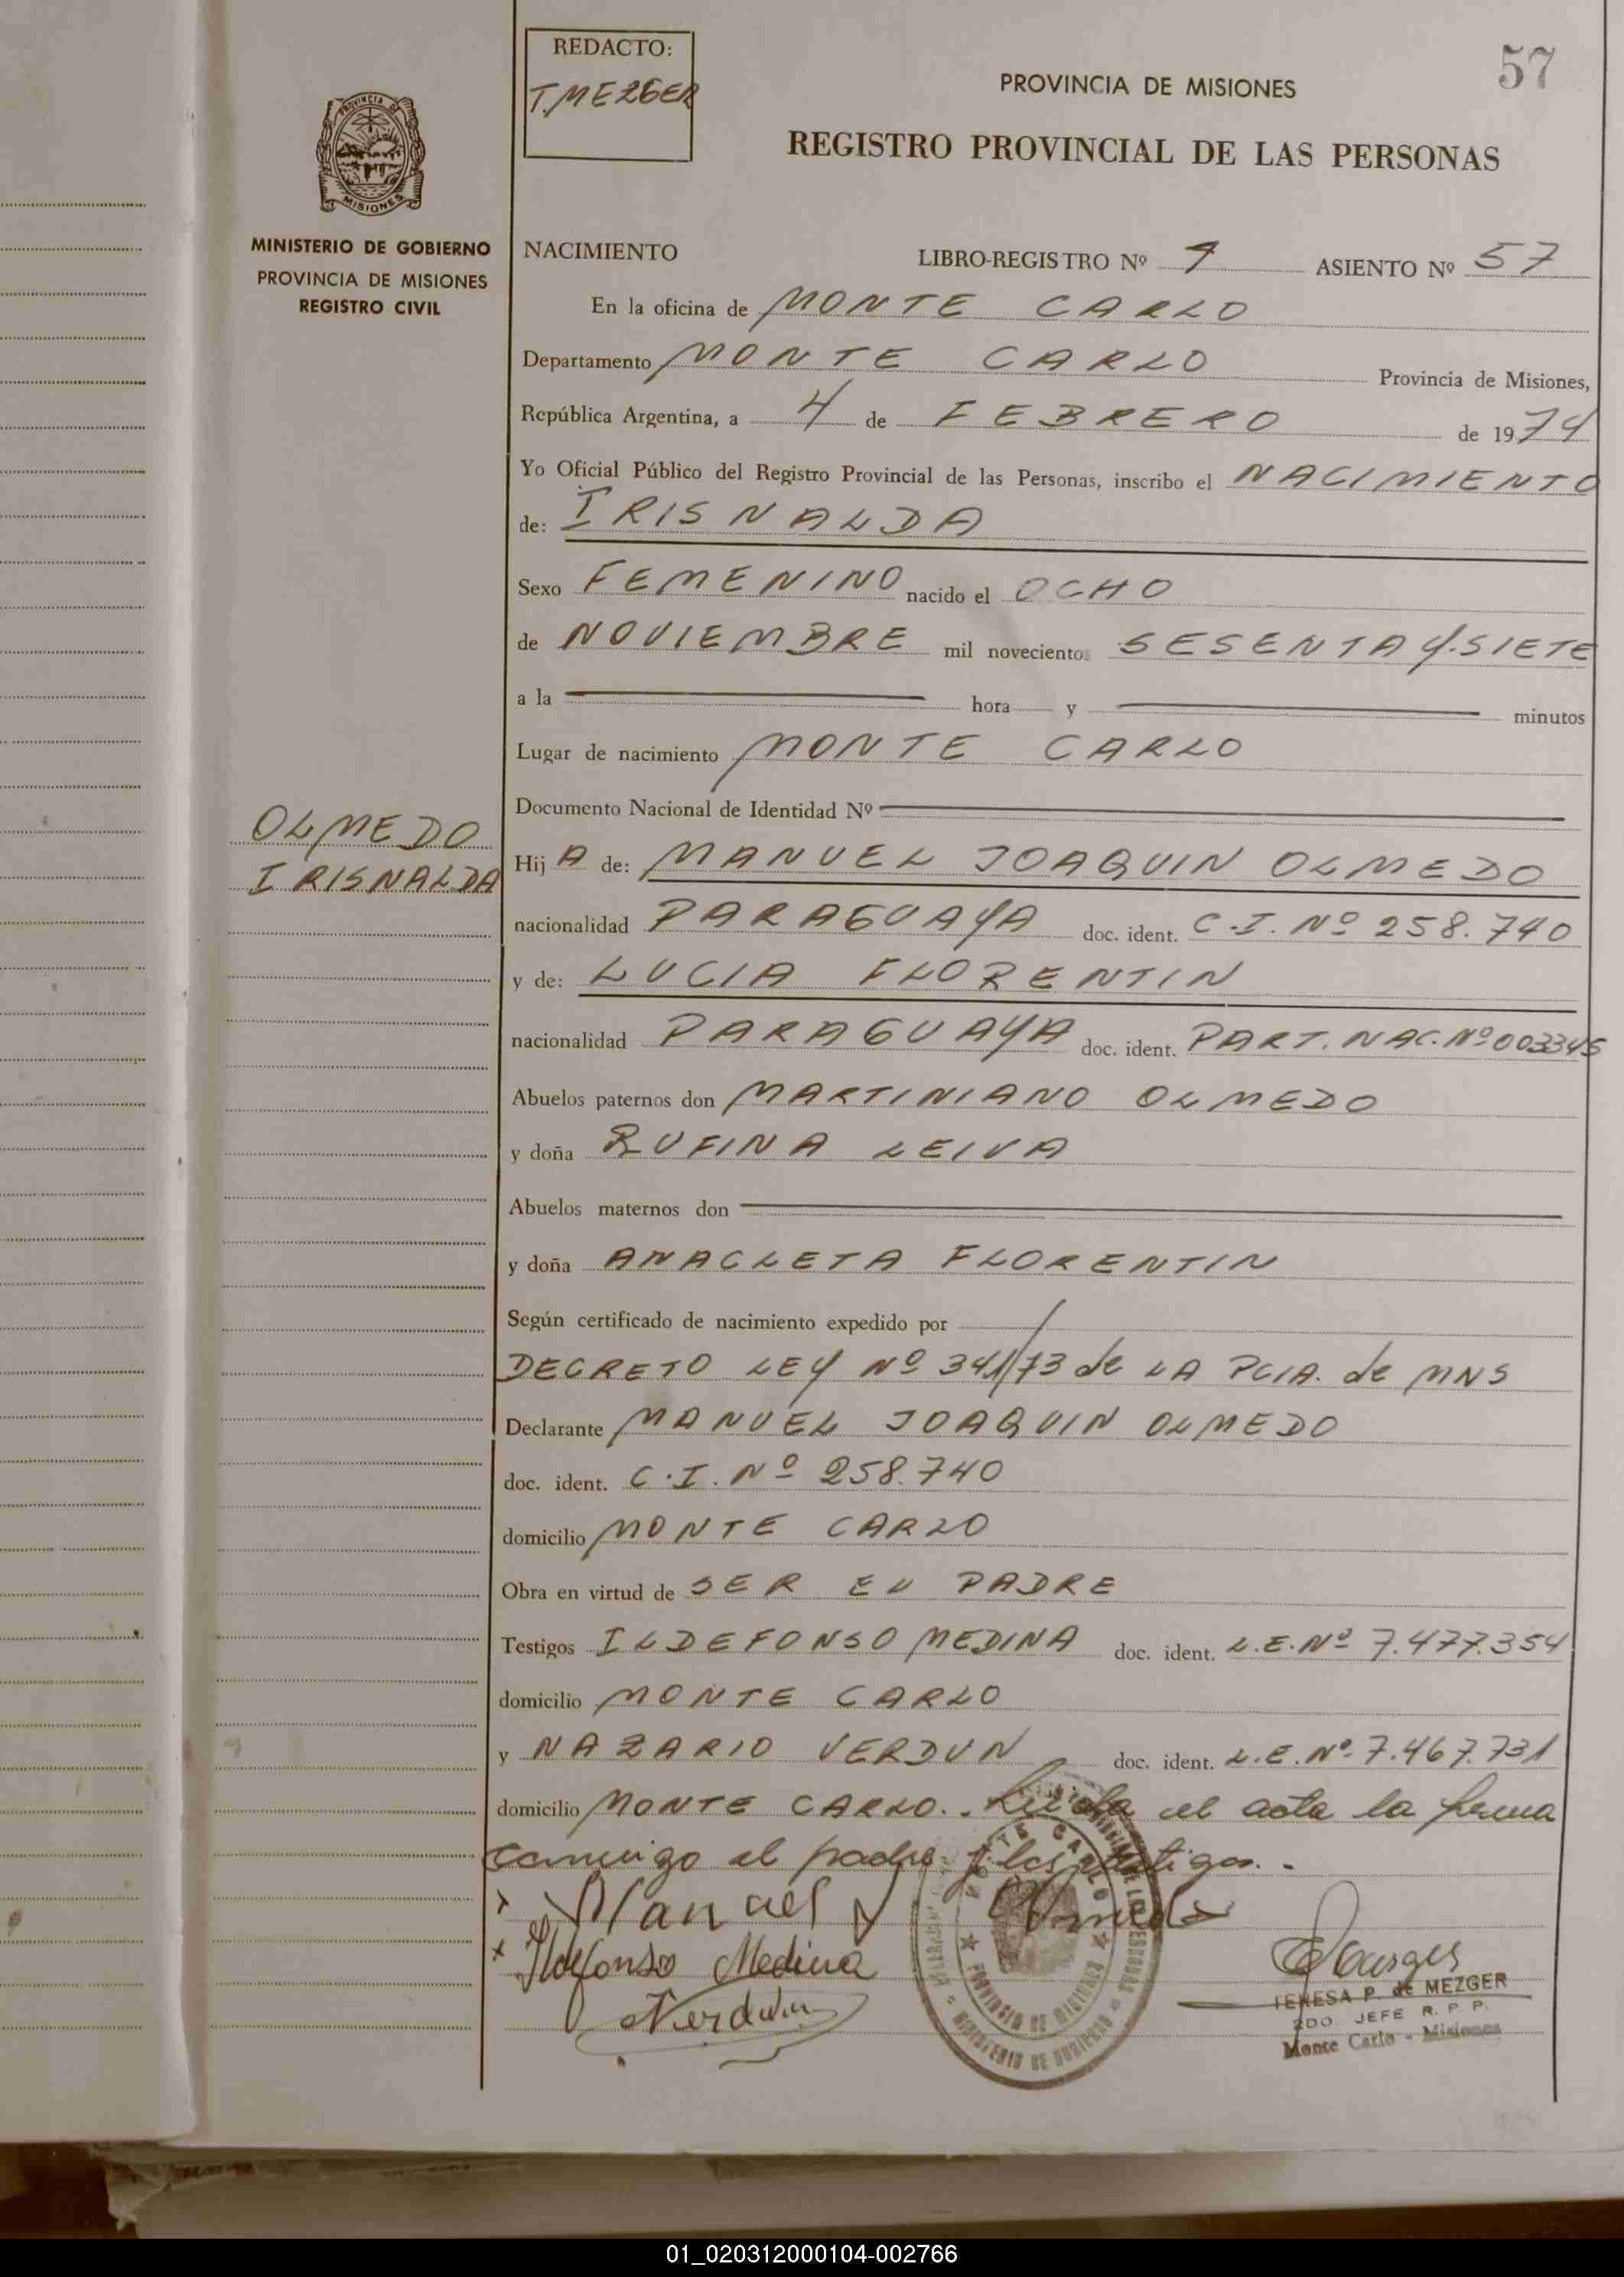 REDACTO:
T. MEZGER
57
PROVINCIA DE MISIONES
REGISTRO PROVINCIAL DE LAS PERSONAS
PROVINCIA DE
MISIONES
MINISTERIO DE GOBIERNO
PROVINCIA DE MISIONES
REGISTRO CIVIL
NACIMIENTO LIBRO-REGISTRO Nº 1 ASIENTO Nº 57
En la oficina de MONTE CARLO
Departamento MONTE CARLO Provincia de Misiones,
República Argentina, a 4 de FEBRERO de 1974
Yo Oficial Público del Registro Provincial de las Personas, inscribo el NACIMIENTO
de: IRISNALDA
Sexo FEMENINO nacido el OCHO
de NOVIEMBRE mil noveciento SESENTA Y SIETE
a la hora y minutos
Lugar de nacimiento MONTE CARLO
Documento Nacional de Identidad Nº
OLMEDO
IRISNALDA
Hij A de: MANUEL JOAQUIN OLMEDO
nacionalidad PARAGUAYA doc. ident. C.I. Nº 258.740
y de: LUCIA FLORENTIN
nacionalidad PARAGUAYA doc. ident. PART. NAC. Nº 003345
Abuelos paternos don MARTINIANO OLMEDO
y doña RUFINA LEIVA
Abuelos maternos don
y doña ANACLETA FLORENTIN
Según certificado de nacimiento expedido por /
DECRETO LEY Nº 341/73 de LA PCIA. de MNS
Declarante MANUEL JOAQUIN OLMEDO
doc. ident. C.I. Nº 258.740
domicilio MONTE CARLO
Obra en virtud de SER EL PADRE
Testigos ILDEFONSO MEDINA doc. ident. L.E. Nº 7.477.354
domicilio MONTE CARLO
y NAZARIO VERDUN doc. ident. L.E. Nº 7.467.731
domicilio MONTE CARLO. Leída el acta la firma
conmigo el padre y los testigos.-
Manuel J Olmedo
Ildefonso Medina
Verdun
MONTE CARLO
PROVINCIA DE MISIONES
MINISTERIO DE GOBIERNO
TERESA P. de MEZGER
2DO. JEFE R. P. P.
Monte Carlo - Misiones
01_020312000104-002766